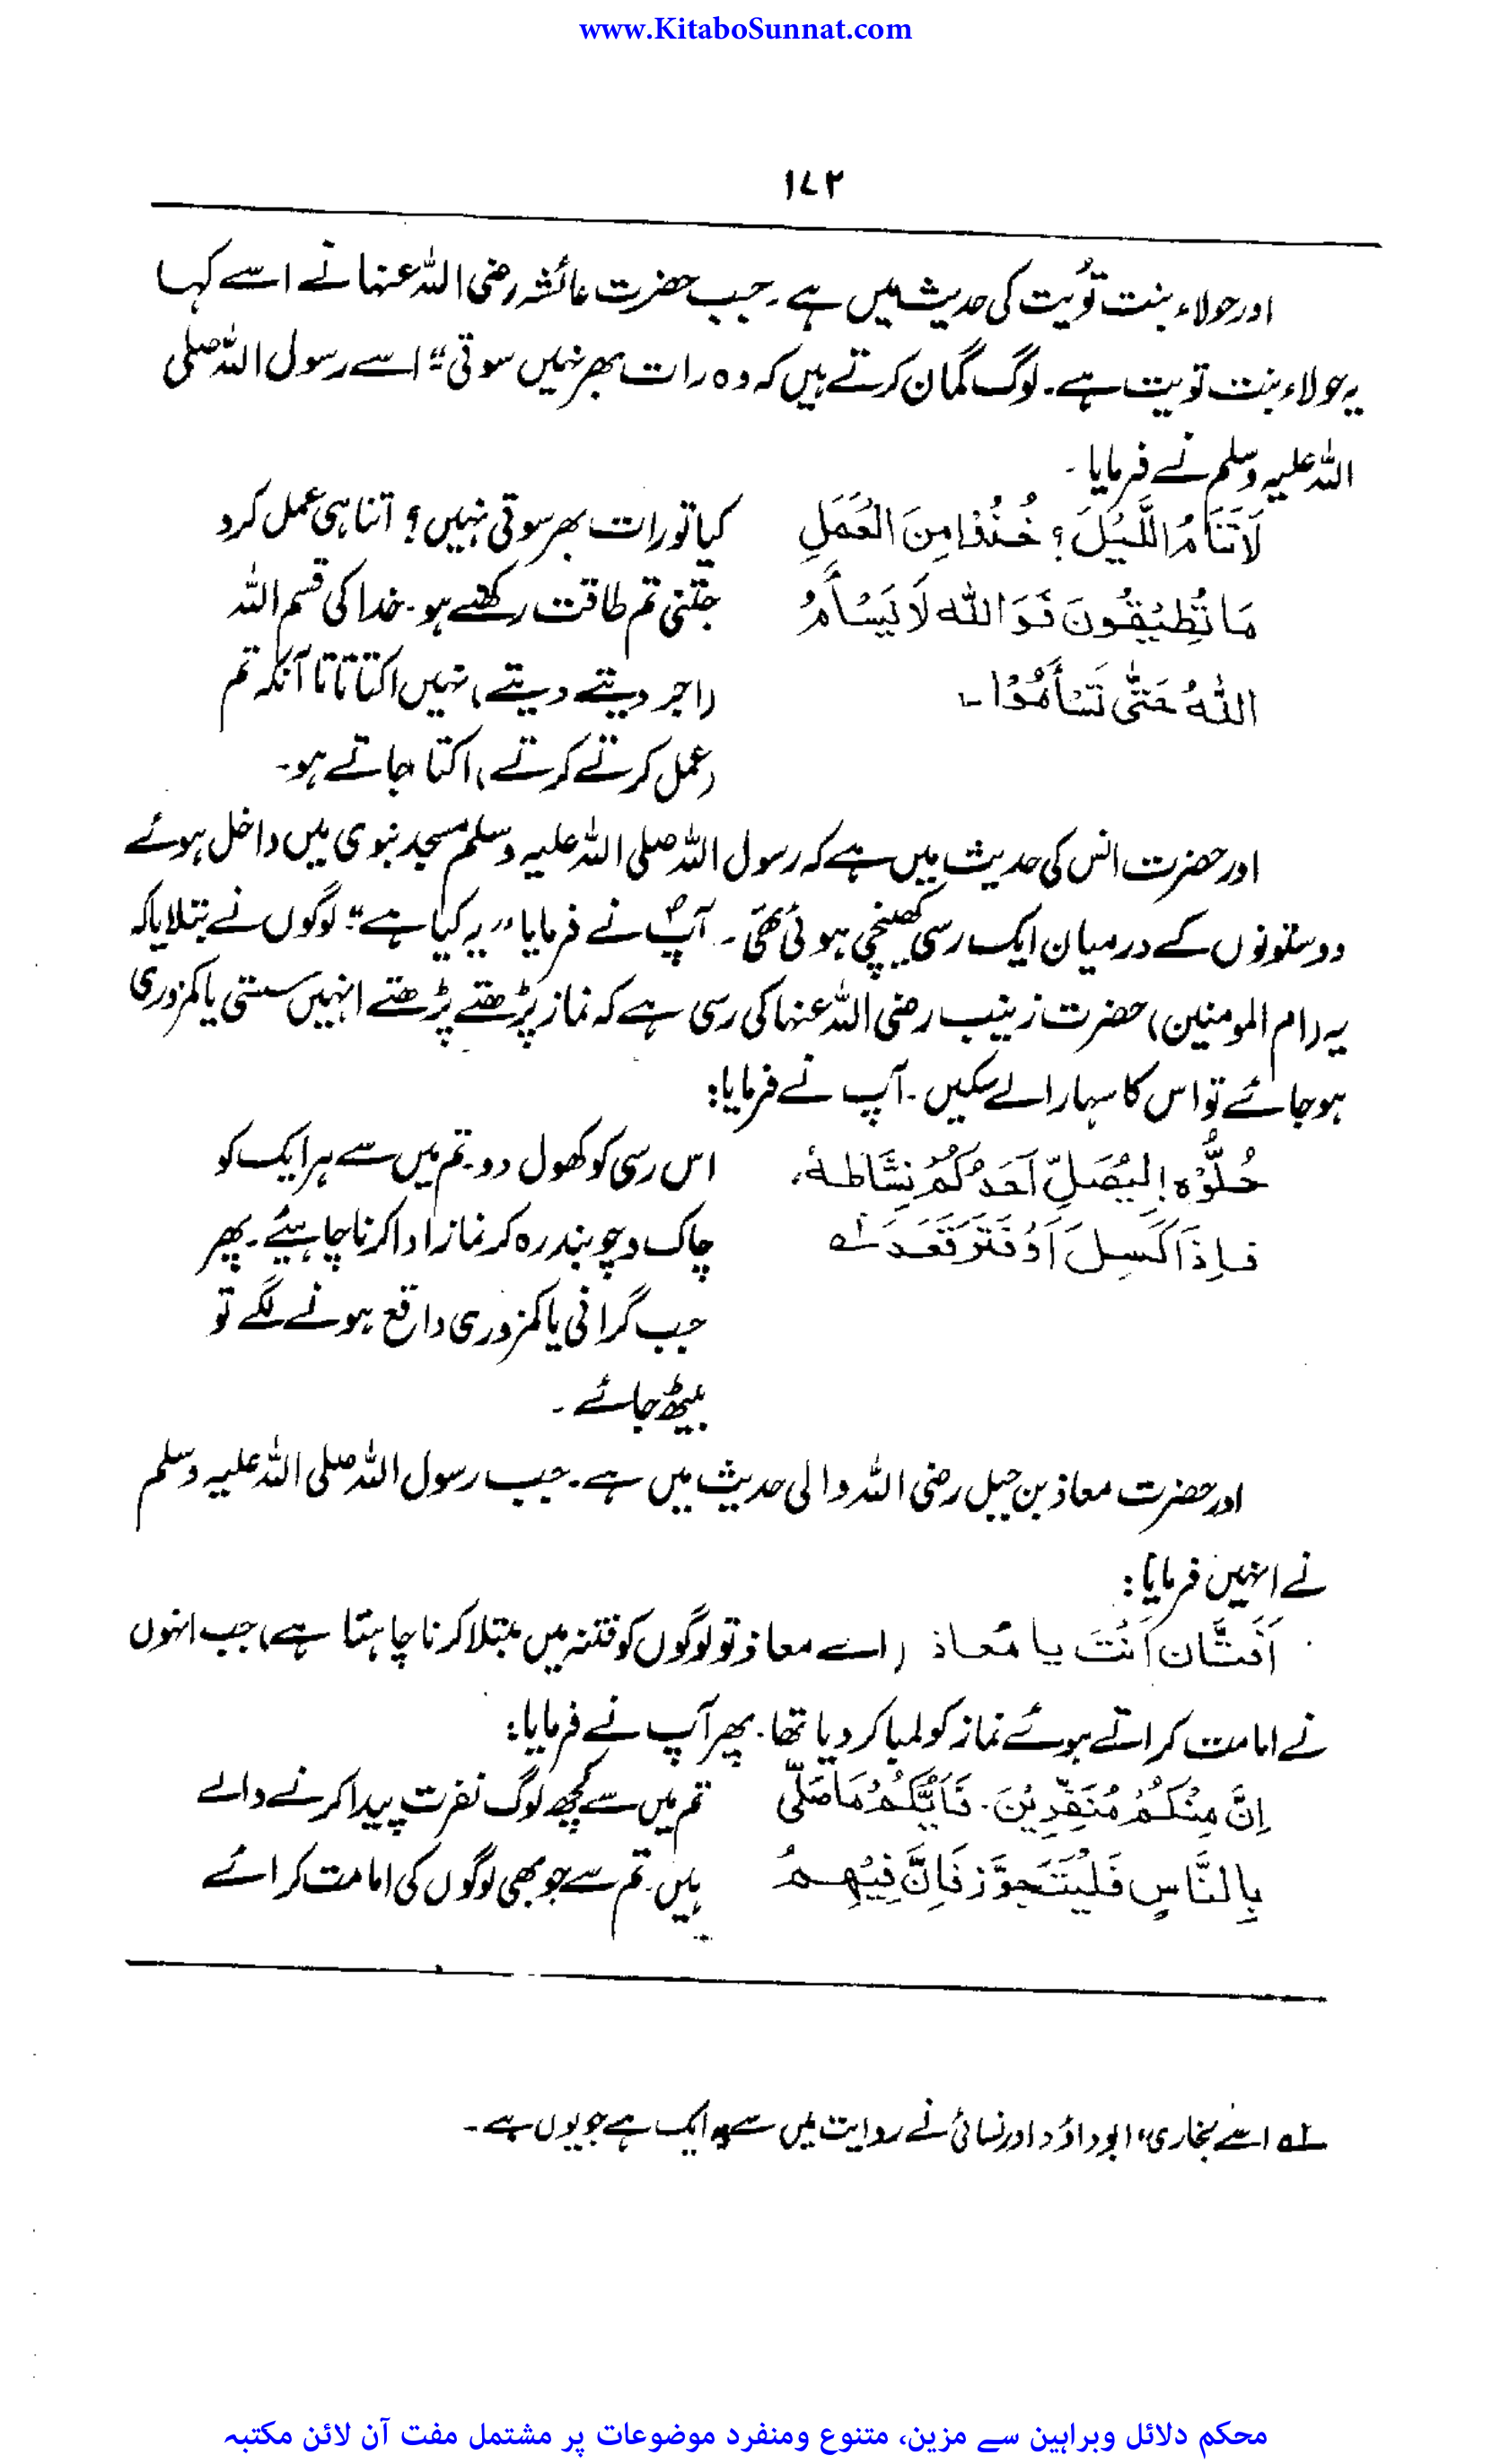 www.KitaboSunnat.com
۱۷۲
اور حولاء بنت تُویت کی حدیث میں ہے۔ جب حضرت عائشہ رضی اللہ عنہا نے اسے کہا
یہ حولاء بنت تویت ہے۔ لوگ گمان کرتے ہیں کہ وہ رات بھر نہیں سوتی“ اسے رسول اللہ صلی
اللہ علیہ وسلم نے فرمایا۔
لَاتَنَامُ اللَّیْلَ؟ خُذُوْا مِنَ الْعَمَلِ
مَا تُطِیْقُونَ فَوَ اللہ لَا یَسْأَمُ
اللہُ حَتّٰی تَسْأَمُوْا۔
کیا تو رات بھر سوتی نہیں؟ اتنا ہی عمل کرو
جتنی تم طاقت رکھتے ہو۔ خدا کی قسم اللہ
(اجر دیتے دیتے) نہیں اکتاتا تا آنکہ تم
(عمل کرتے کرتے) اکتا جاتے ہو۔
اور حضرت انس کی حدیث میں ہے کہ رسول اللہ صلی اللہ علیہ وسلم مسجد نبوی میں داخل ہوئے
دو ستونوں کے درمیان ایک رسی کھینچی ہوئی تھی۔ آپؐ نے فرمایا ”یہ کیا ہے“؟ لوگوں نے بتلایا کہ
یہ (ام المومنین) حضرت زینب رضی اللہ عنہا کی رسی ہے کہ نماز پڑھتے پڑھتے انہیں سستی یا کمزوری
ہو جائے تو اس کا سہارا لے سکیں۔ آپ نے فرمایا:
حُلُّوْہ! لِیُصَلِّ اَحَدُکُمْ نِشَاطَہٗ،
فَاِذَا کَسِلَ اَوْ فَتَرَ قَعَدَ۔ لہ
اس رسی کو کھول دو۔ تم میں سے ہر ایک کو
چاک و چوبند رہ کر نماز ادا کرنا چاہیئے۔ پھر
جب گرانی یا کمزوری واقع ہونے لگے تو
بیٹھ جائے۔
اور حضرت معاذ بن جبل رضی اللہ والی حدیث میں ہے۔ جب رسول اللہ صلی اللہ علیہ وسلم
نے انہیں فرمایا:
اَفَتَّان اَنْتَ یا مُعاذ (اے معاذ تو لوگوں کو فتنہ میں مبتلا کرنا چاہتا ہے) جب انہوں
نے امامت کراتے ہوئے نماز کو لمبا کر دیا تھا۔ پھر آپ نے فرمایا:
اِنَّ مِنْکُمْ مُنَفِّرِیْنَ۔ فَاَیُّکُمْ مَا صَلّٰی
بِالنَّاسِ فَلْیَتَجَوَّز فَاِنَّ فِیْہِمُ
تم میں سے کچھ لوگ نفرت پیدا کرنے والے
ہیں۔ تم سے جو بھی لوگوں کی امامت کرائے
لہ اسے بخاری، ابو داؤد اور نسائی نے روایت میں سے ایک ہے جو یوں ہے۔
محکم دلائل وبراہین سے مزین، متنوع ومنفرد موضوعات پر مشتمل مفت آن لائن مکتبہ